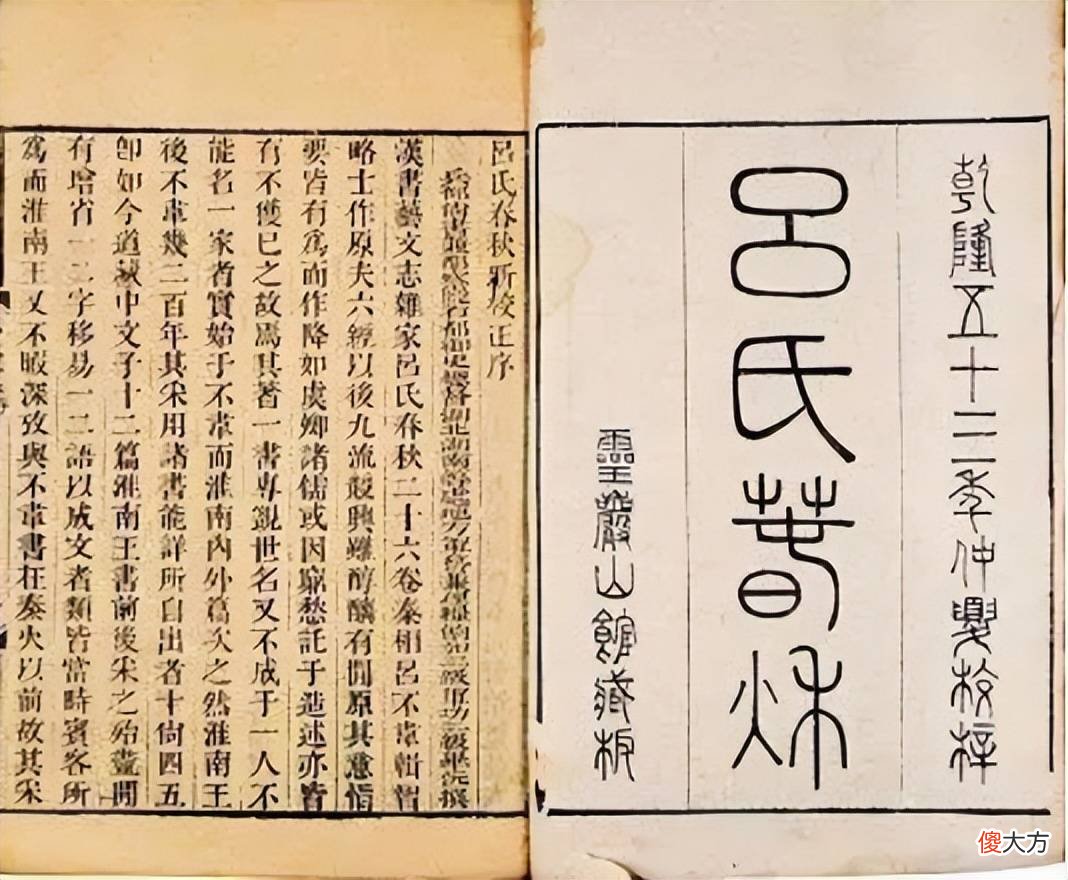 乾隆五十三年仲夏校梓
呂氏萅秌
靈巖山館藏板
呂氏春秋新校正序
總督湖北湖南等處地方軍務 畢沅撰
漢書藝文志雜家呂氏春秋二十六卷秦相呂不韋輯智
略士作原夫六經以後九流競興雖醇醨有閒原其意恉
要皆有爲而作降如虞卿諸儒或因窮愁託于造述亦皆
有不獲已之故焉其著一書專覬世名又不成于一人不
能名一家者實始于不韋而淮南內外篇次之然淮南王
後不韋幾二百年其采用諸書能詳所自出者十尚四五
卽如今道藏中文子十二篇淮南王書前後采之殆盡閒
有增省一二字移易一二語以成文者類皆當時賓客所
爲而淮南王又不暇深攷與不韋書在秦火以前故其采
傻大方